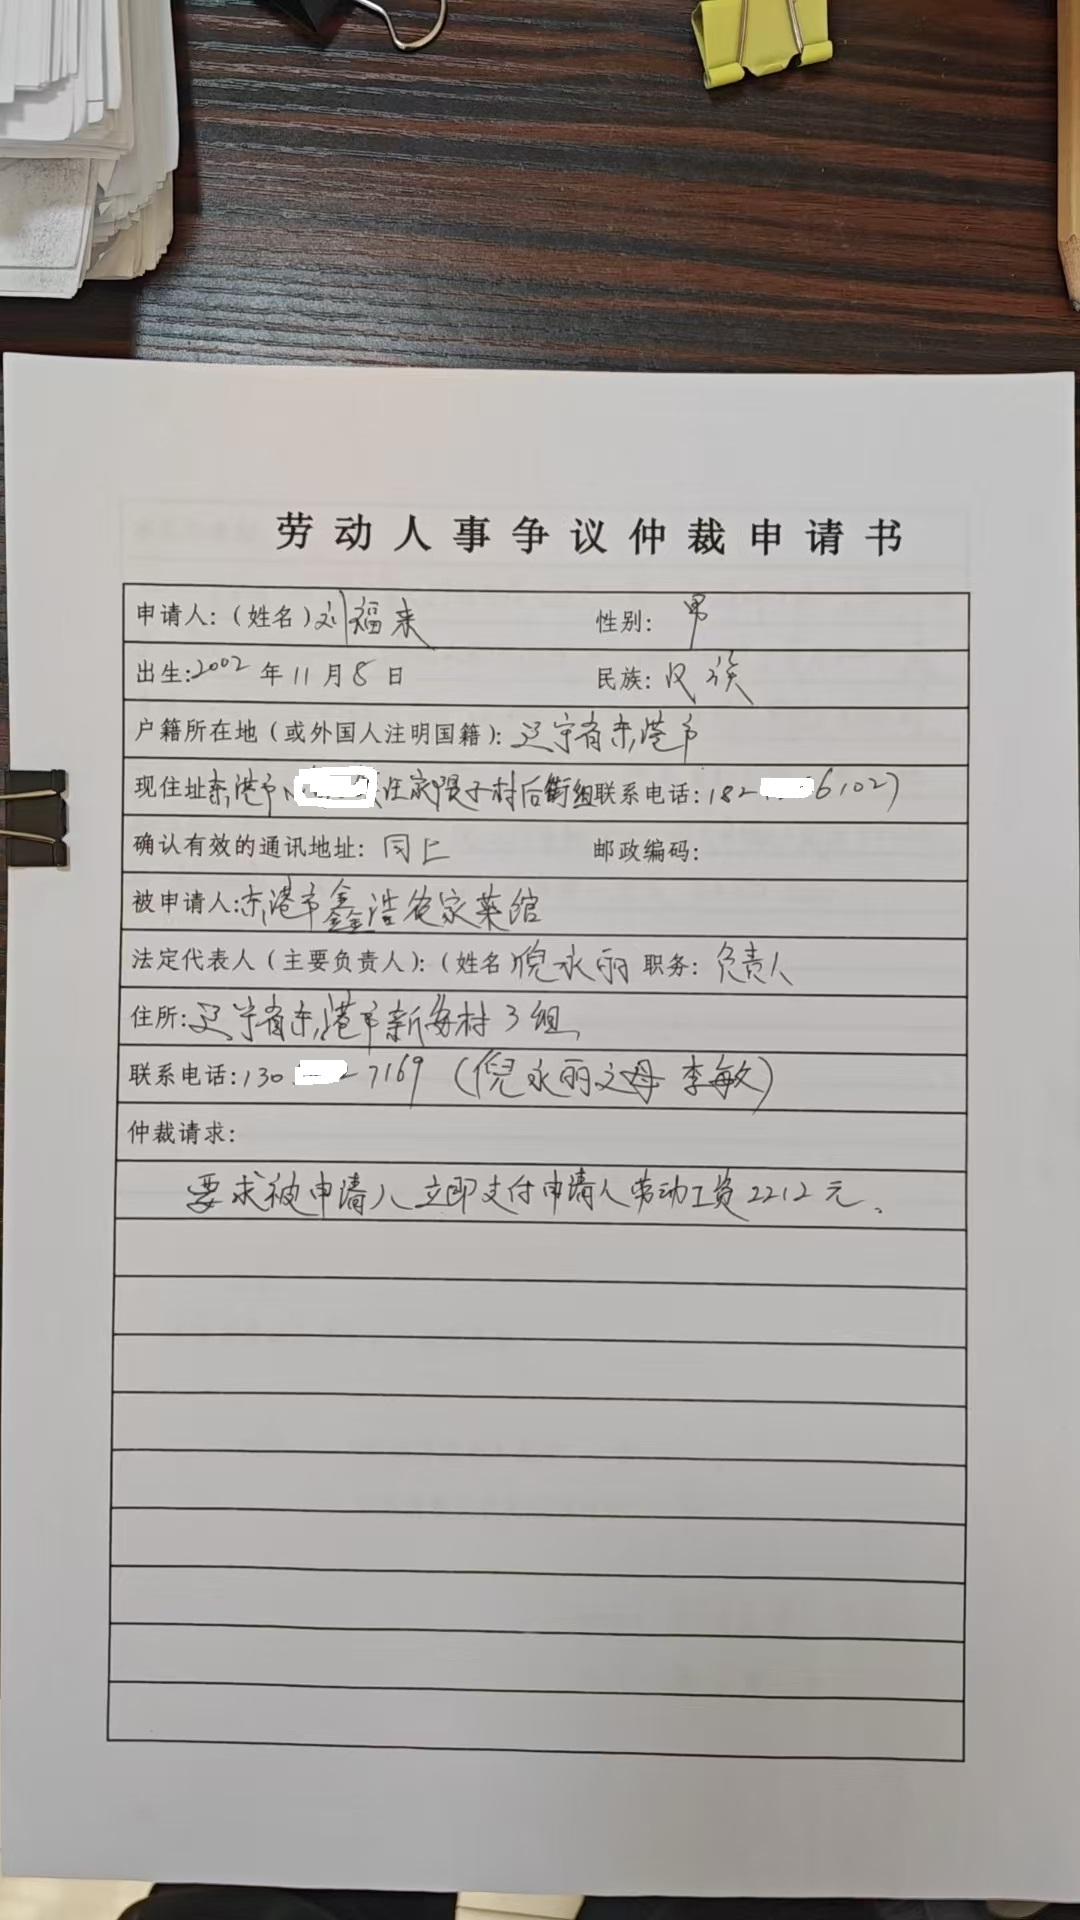 劳动人事争议仲裁申请书
申请人：（姓名）刘福来 性别： 男
出生：2002年11月8日 民族：汉族
户籍所在地（或外国人注明国籍）：辽宁省东港市
现住址东港市 村后街组联系电话：182 61027
确认有效的通讯地址：同上 邮政编码：
被申请人：东港市鑫浩农家菜馆
法定代表人（主要负责人）：（姓名）倪永丽 职务：负责人
住所：辽宁省东港市新海村3组
联系电话：130 27169（倪永丽之母 李敏）
仲裁请求：
要求被申请人立即支付申请人劳动工资2212元。